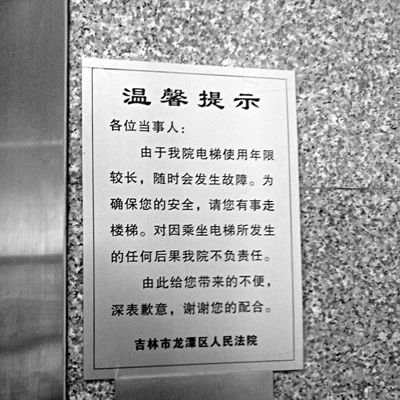 温馨提示
各位当事人：
由于我院电梯使用年限
较长，随时会发生故障。为
确保您的安全，请您有事走
楼梯。对因乘坐电梯所发生
的任何后果我院不负责任。
由此给您带来的不便，
深表歉意，谢谢您的配合。
吉林市龙潭区人民法院